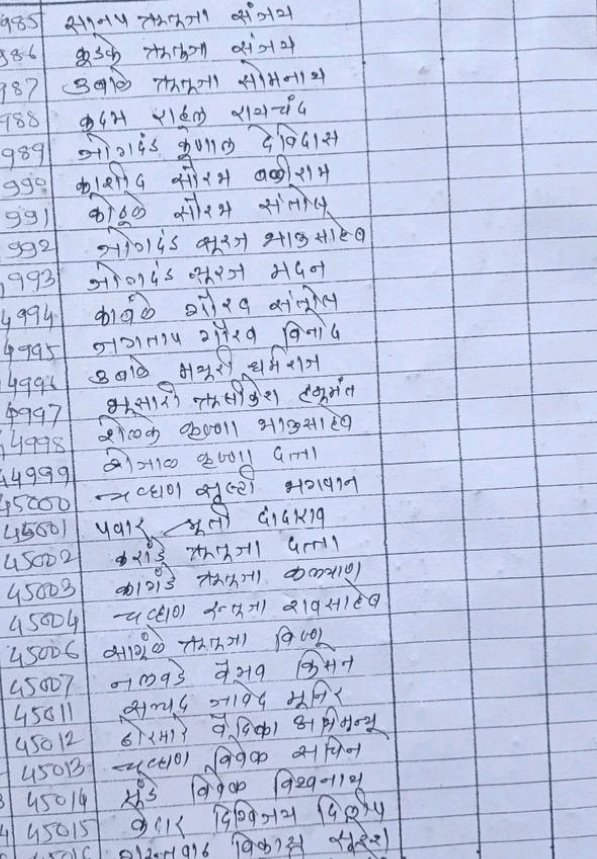 985 सानप ऋतूजा संजय
986 कुडके ऋतूजा संजय
987 उबाळे ऋतूजा सोमनाथ
988 कदम राहुल रायचंद
989 जोगदंड कुणाल देविदास
999 काशीद सौरभ बळीराम
991 कोठुळे सौरभ संतोष
992 जोगदंड सूरज भाऊसाहेब
993 जोगदंड सूरज मदन
4994 काबळे गौरव संतोष
4995 जगताप गौरव विनोद
4996 उबाळे मयुरी धर्मराज
4997 भूसारी ऋषीकेश हनूमंत
4998 शेळके कृष्णा भाऊसाहेब
44999 शेजाळ कृष्णा दत्ता
45000 चव्हाण सृष्टी भगवान
45001 पवार दादाराव
45002 करांडे ऋतूजा दत्ता
45003 कागंडे ऋतूजा कल्याण
45004 चव्हाण ऋतूजा रावसाहेब
45006 सागूळे ऋतूजा विष्णू
45007 नलवडे वैभव किसन
45011 सय्यद जावेद मूनिर
45012 वेदिका अभिमन्यू
45013 चव्हाण विवेक सचिन
45014 मूंडे विवेक विश्वनाथ
45015 केदार दिग्विजय दिलीप
विकास सूरेश